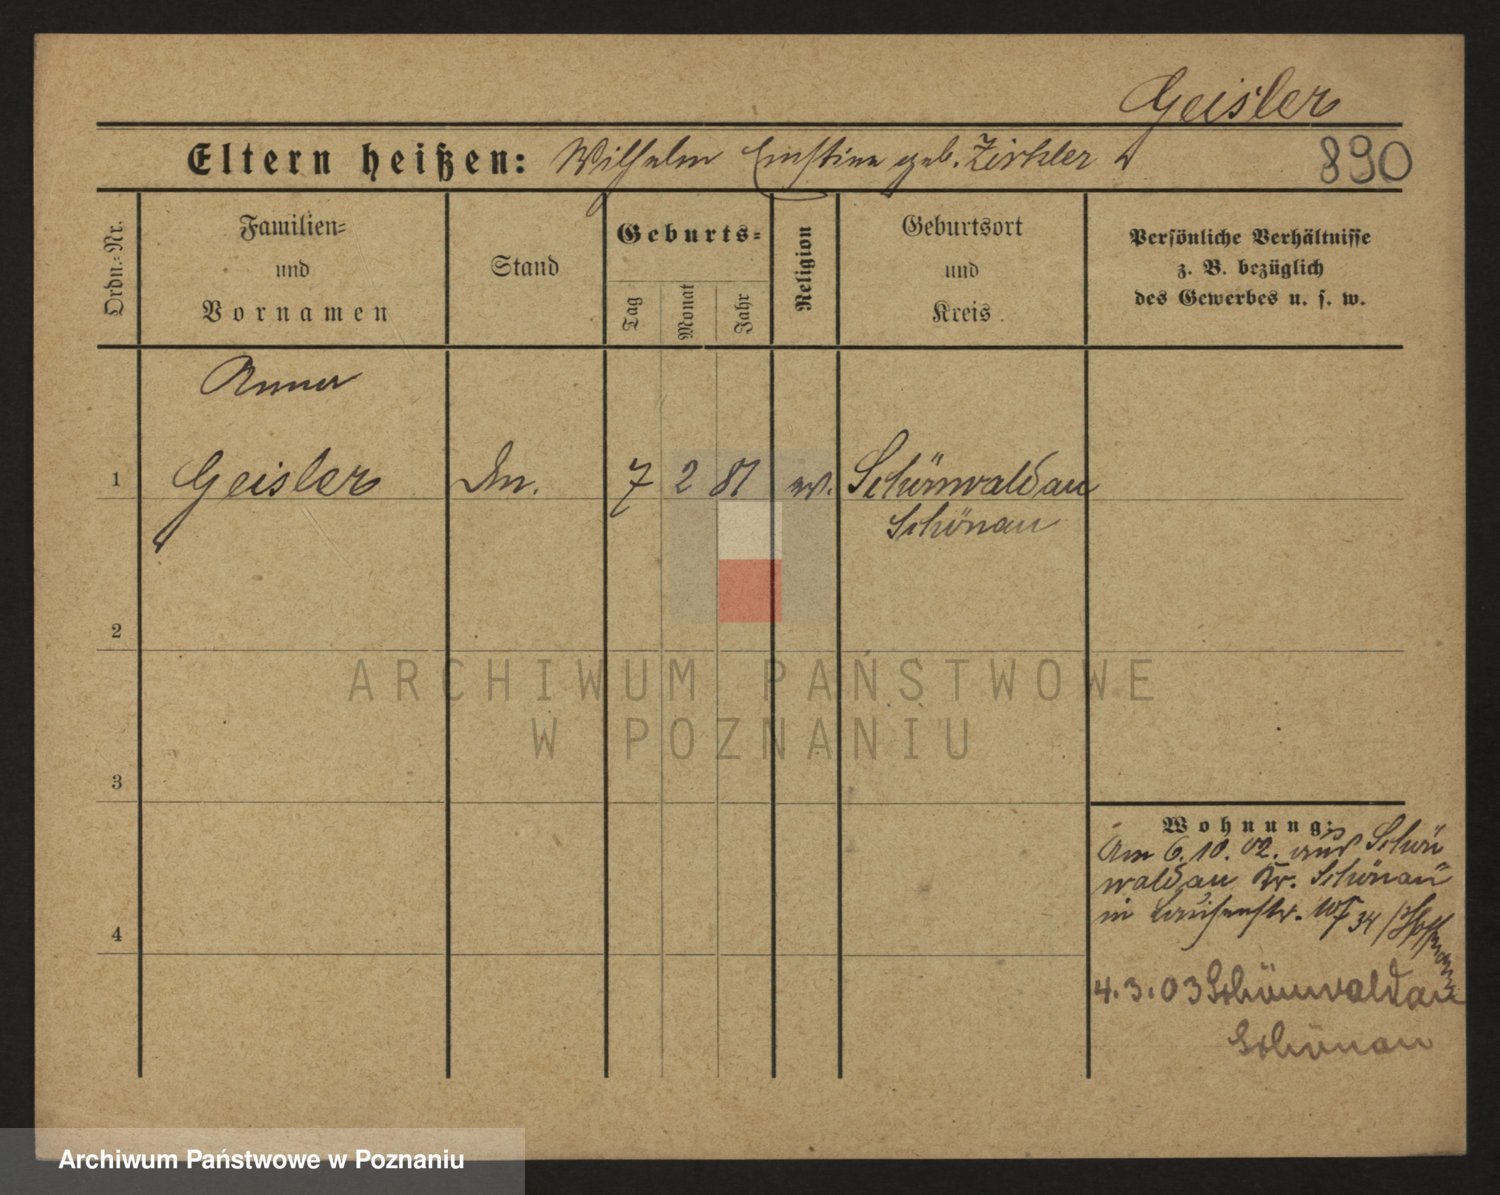 Geisler
Eltern heißen: Wilhelm Ernstine geb. Zirkler
890
Ordn.-Nr.
Familien-
und
Vornamen
Stand
Geburts-
Tag
Monat
Jahr
Religion
Geburtsort
und
Kreis
Persönliche Verhältnisse
z. B. bezüglich
des Gewerbes u. s. w.
Anna
1 Geisler Dm. 7 2 81 ev. Schönwaldau
Schönau
2
ARCHIWUM PAŃSTWOWE
W POZNANIU
3
Wohnung:
Am 6.10.02. aus Schön
waldau Kr. Schönau
in Luisenstr. 34
4
4.3.03 Schönwaldau
Schönau
Archiwum Państwowe w Poznaniu